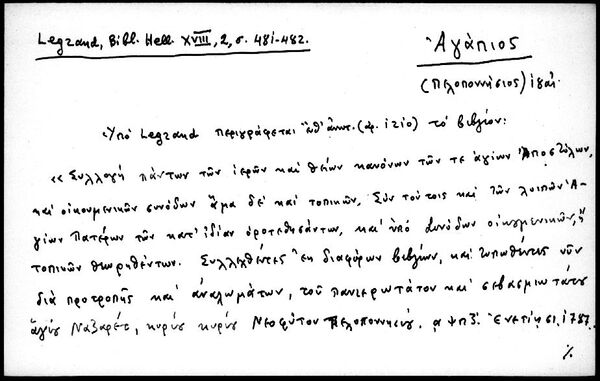 Legrand, Bibl. Hell. XVIII, 2, σ. 481-482.
Ἀγάπιος
(Πελοποννήσιος)
Ὑπό Legrand περιγράφεται (ἀρ. 1210) τό βιβλίον:
«Συλλογή πάντων τῶν ἱερῶν καί θείων κανόνων τῶν τε ἁγίων Ἀποστόλων,
καί οἰκουμενικῶν συνόδων ἅμα δέ καί τοπικῶν, Σύν τούτοις καί τῶν λοιπῶν Ἁ-
γίων Πατέρων τῶν κατ' ἰδίαν ὁροτεθησάντων, καί ὑπό Συνόδων οἰκουμενικῶν, ἤ
τοπικῶν θεωρηθέντων. Συλλεχθέντες ἐκ διαφόρων βιβλίων, καί τυπωθέντες νῦν
διά προτροπῆς καί ἀναλωμάτων, τοῦ πανιερωτάτου καί σεβασμιωτάτου
ἁγίου Ναζαρέτ, κυρίου κυρίου Νεοφύτου Πελοποννησίου, αψπζ. Ἐνετίῃσι, 1787.
%